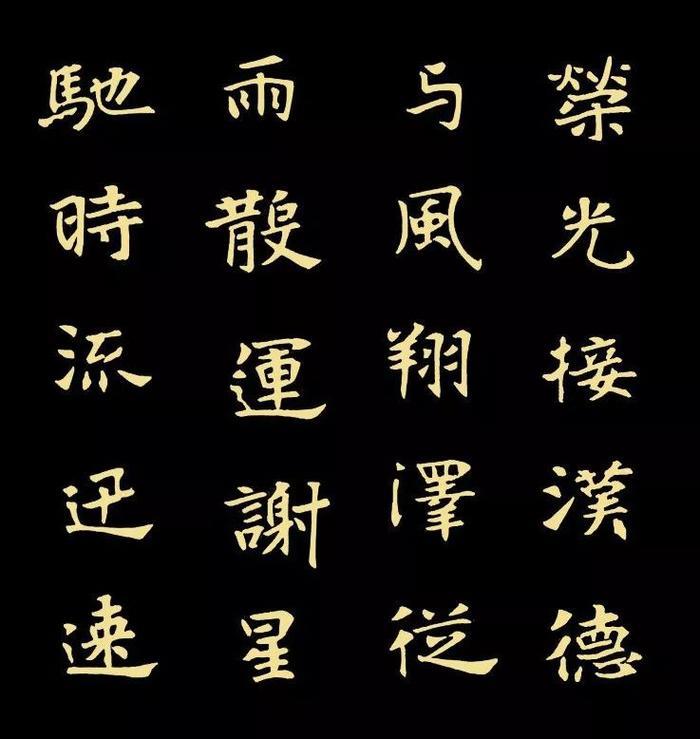 榮光接漢德
与風翔澤從
雨散運謝星
馳時流迅速